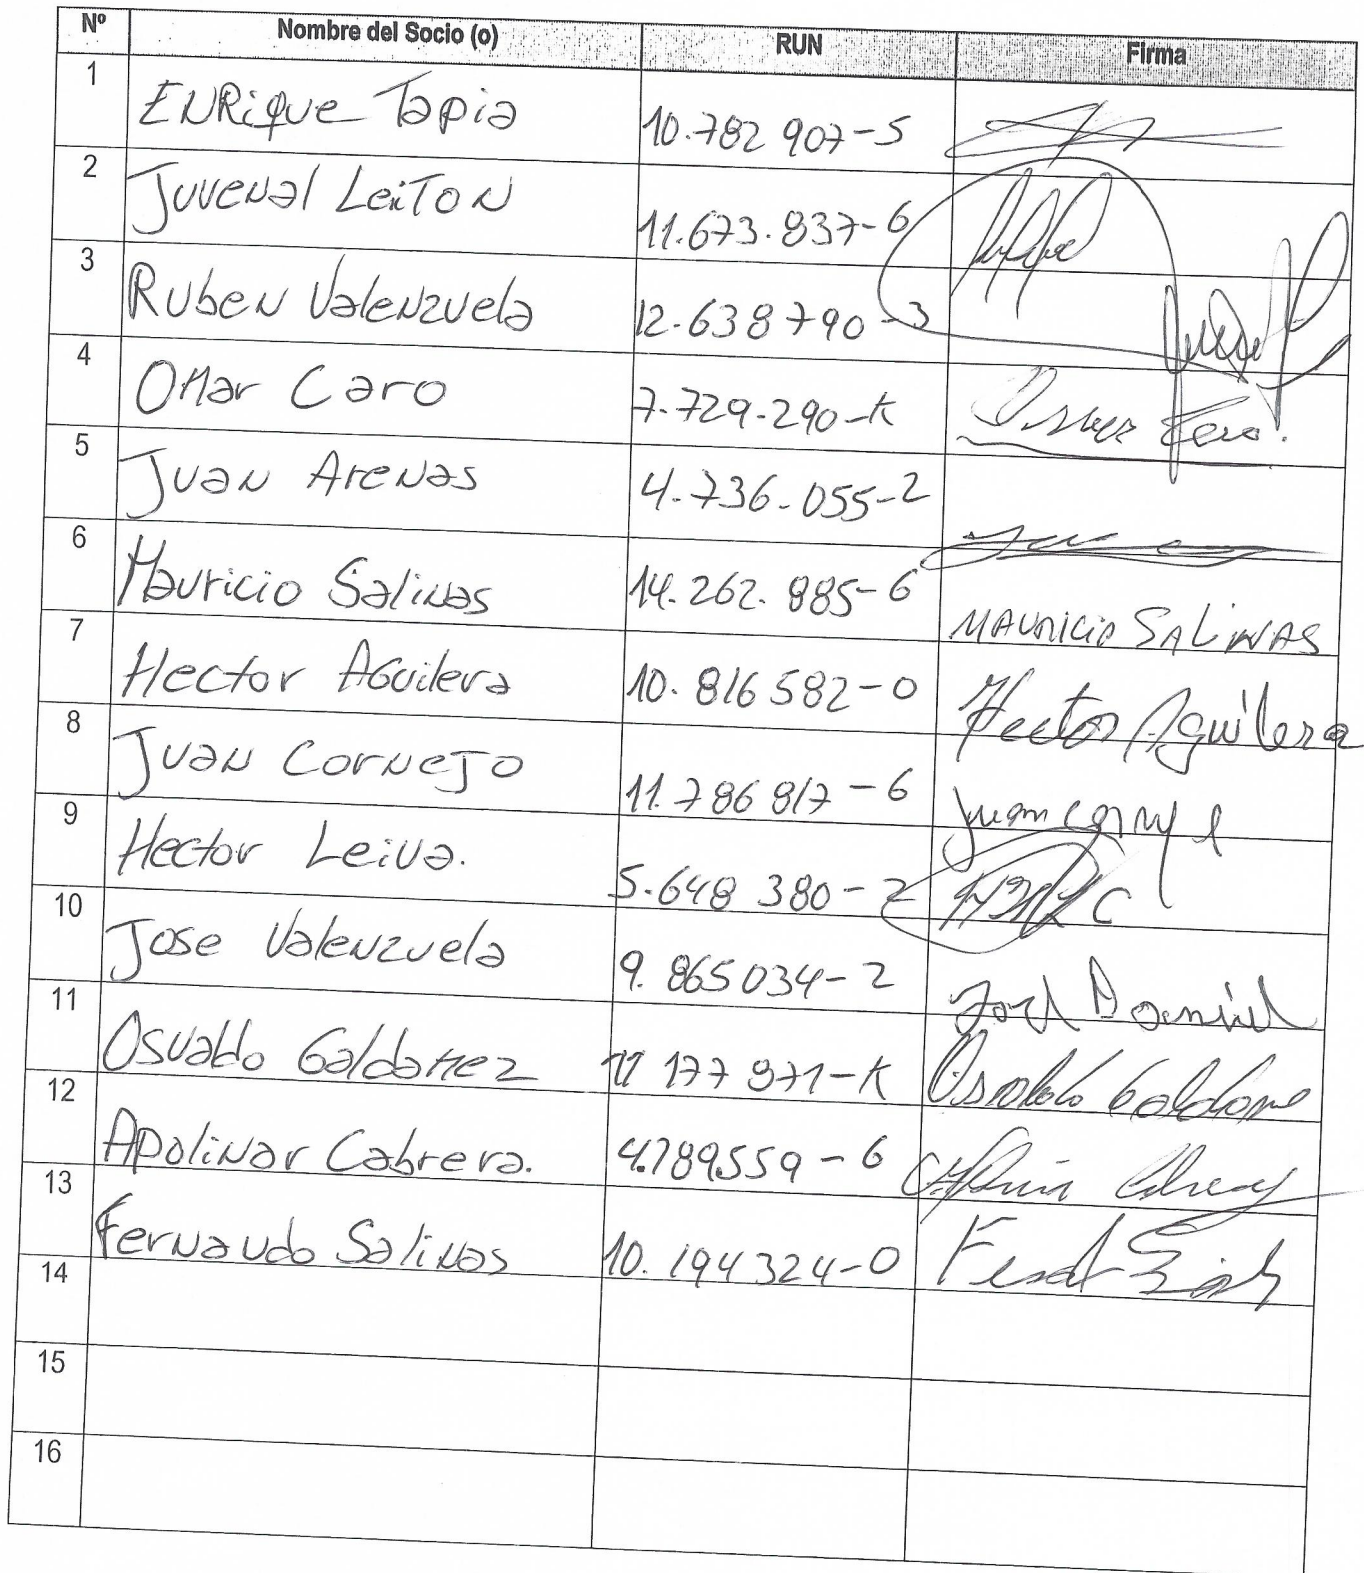 Nº Nombre del Socio (o) RUN Firma
1 ENRique Tapia 10.782 907-5
2 Juvenal LeiToN 11.673.837-6
3 RubeN Valenzuela 12.638 790-3
4 OMar Caro 7.729.290-K
5 JuaN AreNas 4.736.055-2
6 Mauricio Salinas 14.262.885-6 MAURICIO SALINAS
7 Hector AGuilera 10.816 582-0 Hector Aguilera
8 JuaN CorNeJo 11.786 817-6
9 Hector Leiva. 5.648 380-2
10 Jose Valenzuela 9.865 034-2
11 Osvaldo GaldaMez 11 177 971-K
12 ApoliNar Cabrera. 4.789559-6
13 FerNando Salinas 10.194 324-0
14
15
16